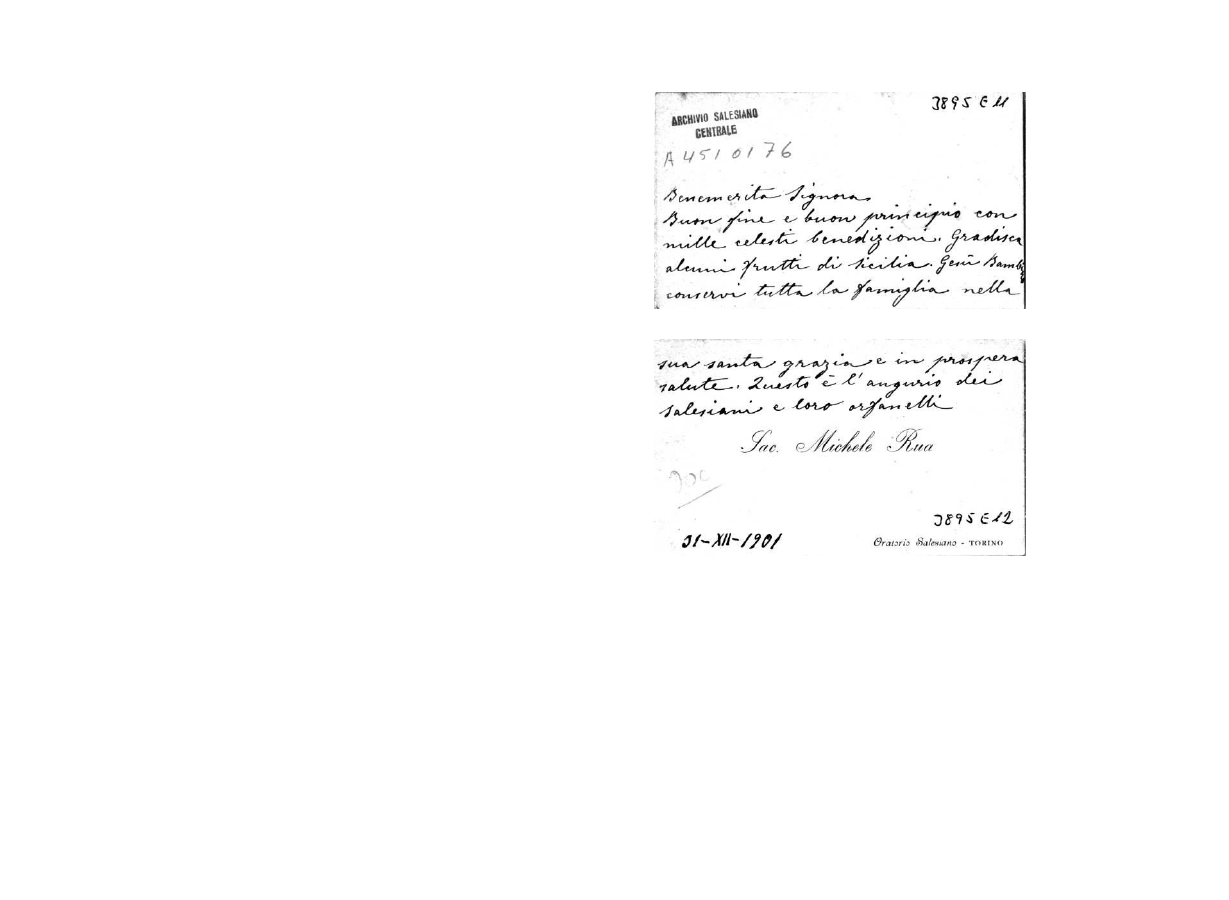 3895 E 11
ARCHIVIO SALESIANO
CENTRALE
A 4510176
Benemerita Signora
Buon fine e buon principio con
mille celesti benedizioni. Gradisca
alcuni frutti di Sicilia. Gesù
conservi tutta la famiglia nella
sua santa grazia e in prospera
salute. Questo è l'augurio dei
Salesiani e loro orfanelli
Sac. Michele Rua
3895 E 12
31-XII-1901
Oratorio Salesiano - TORINO